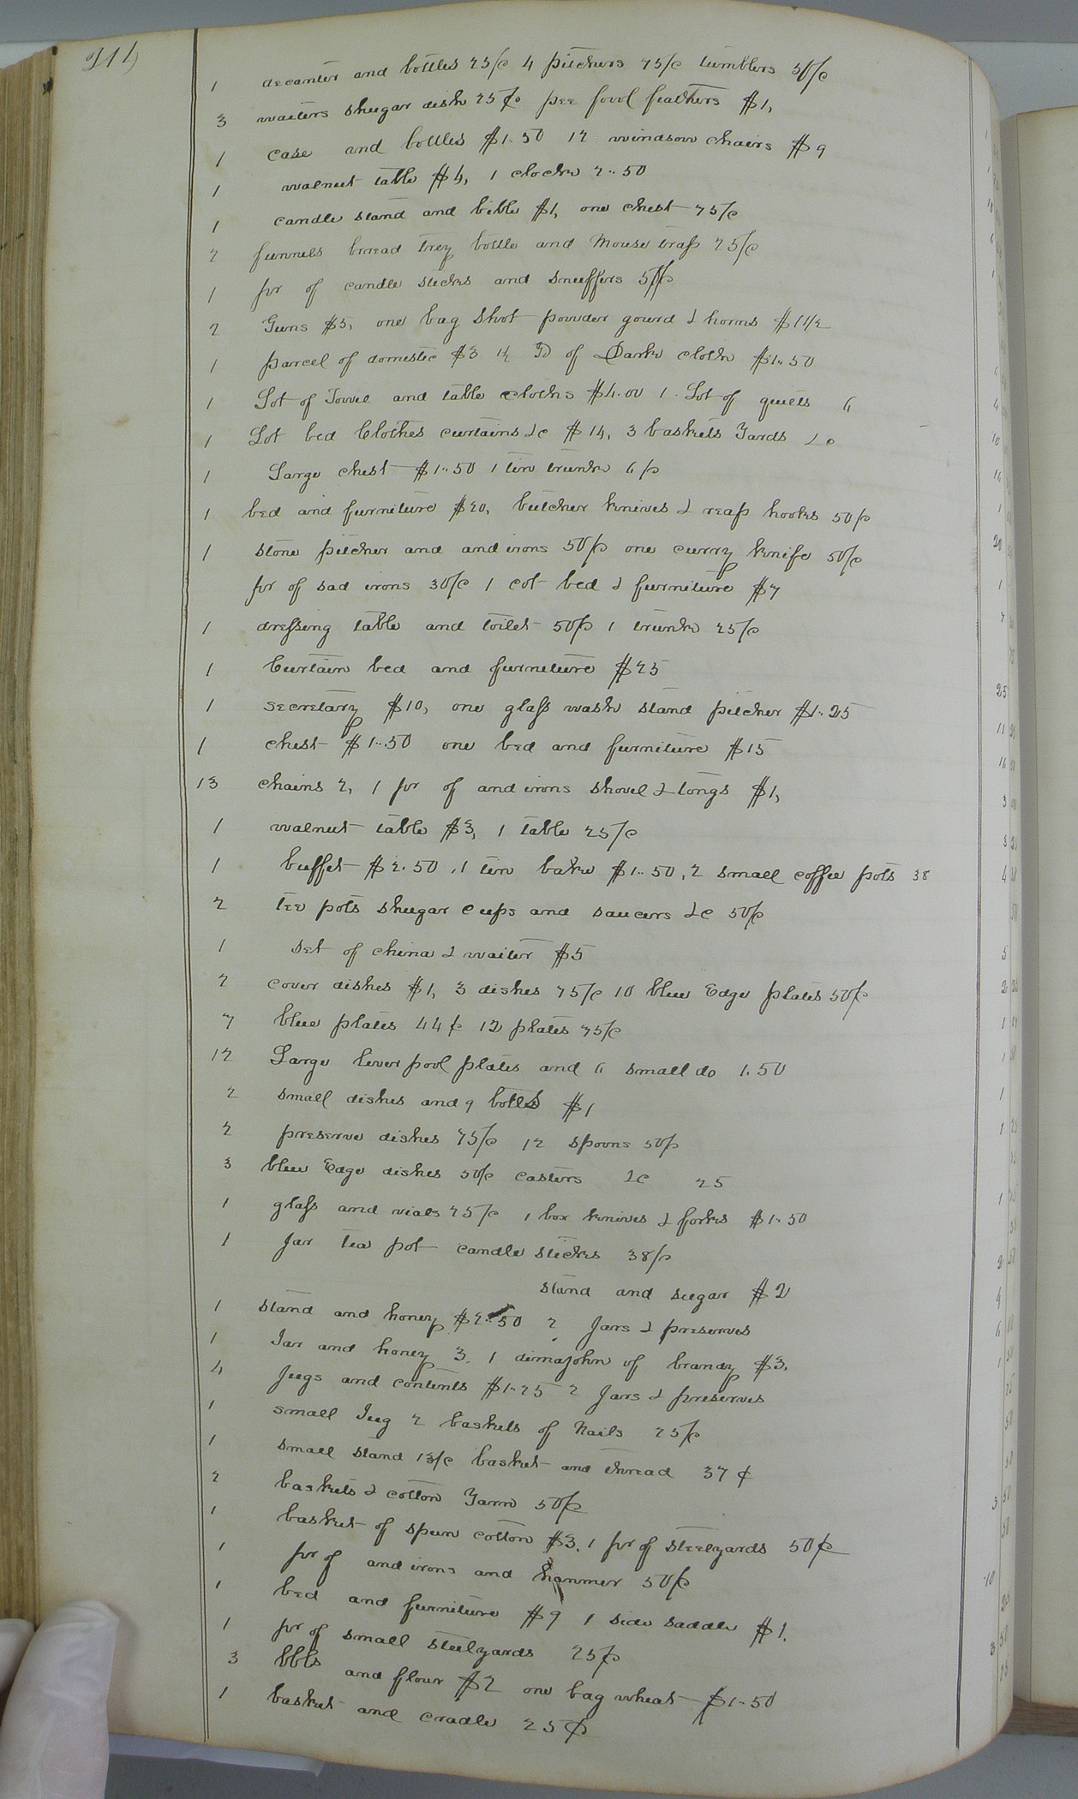 314
1 decanter and bottles 75/c 4 pitchers 75/c tumblers 50/c
3 waiters shugar dish 25 ¢ pee fowl feathers $1,
1 case and bottles $1.50 12 windsow chairs $9
1 walnut table $4, 1 clocke 2..50
1 candle stand and bible $1, one chest 75/c
2 funnels bread trey bottle and Mouse trap 25/c
1 pr of candle stickes and snuffers 50/c
2 Guns $5, one bag shot powder gourd & horns $1 1/2
1 parcel of domestic $3 1/2 yd of Darke cloth $1.50
1 Lot of Towel and table cloths $4.00 1 Lot of quilts 6
1 Lot bed Clothes curtains &c $14, 3 baskets Yards &c
1 Large chest $1..50 1 tin trunke 6/c
1 bed and furniture $20, butcher knives & reap hookes 50/c
1 stone pitcher and and irons 50/c one curry knife 50/c
pr of sad irons 30/c 1 cot bed & furniture $7
1 dressing table and toilet 50/c 1 trunke 25/c
1 Curtain bed and furniture $25
1 secretary $10, one glass wash stand pitcher $1.25
1 chest $1..50 one bed and furniture $15
13 chains 2, 1 pr of and irons shovel & tongs $1,
1 walnut table $3, 1 table 25/c
1 buffet $2.50, 1 tin bake $1..50, 2 small coffee pots 38
2 tee pots shugar cups and saucers &c 50/c
1 set of china & waiter $5
2 cover dishes $1, 3 dishes 75/c 10 blue Edge plates 50/c
7 blue plates 44 ¢ 12 plates 75/c
12 Large liverpool plates and 6 small do 1.50
2 small dishes and 9 bottles $1
2 preserve dishes 75/c 12 spoons 50/c
3 blue Edge dishes 50/c casters &c 25
1 glass and vials 25/c 1 box knives & forkes $1.50
1 Jar tea pot candle stickes 38/c
stand and sugar $2
1 stand and honey $2.50 2 Jars & preserves
1 Jar and honey 3. 1 dimajohn of brandy $3.
4 Jugs and contents $1.25 2 Jars & preserves
1 small Jug 2 baskets of Nails 25/c
1 small stand 13/c basket and thread 37 ¢
2 baskets & cotton Yarn 50/c
1 basket of spun cotton $3. 1 pr of steelyards 50 ¢
1 pr of and irons and hanmer 50/c
1 bed and furniture $9 1 side saddle $1.
1 pr of small steelyards 25/c
3 bbls and flour $2 one bag wheat $1.50
1 basket and cradle 25 ¢